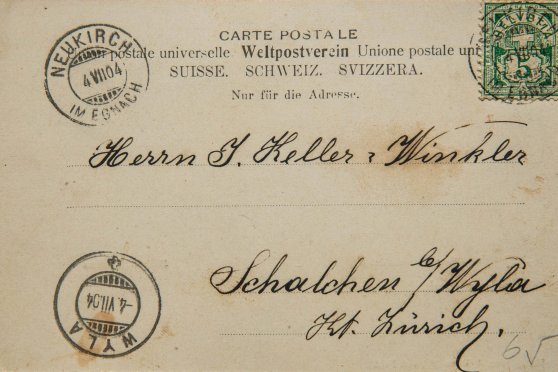 CARTE POSTALE
postale universelle Weltpostverein Unione postale uni
SUISSE. SCHWEIZ. SVIZZERA.
Nur für die Adresse.
NEUKIRCH
4 VII 04
IM EGNACH
5
Herrn J. Keller = Winkler
Schalchen b/Wyla
Kt. Zürich.
WYLA
-4.VII.04
65